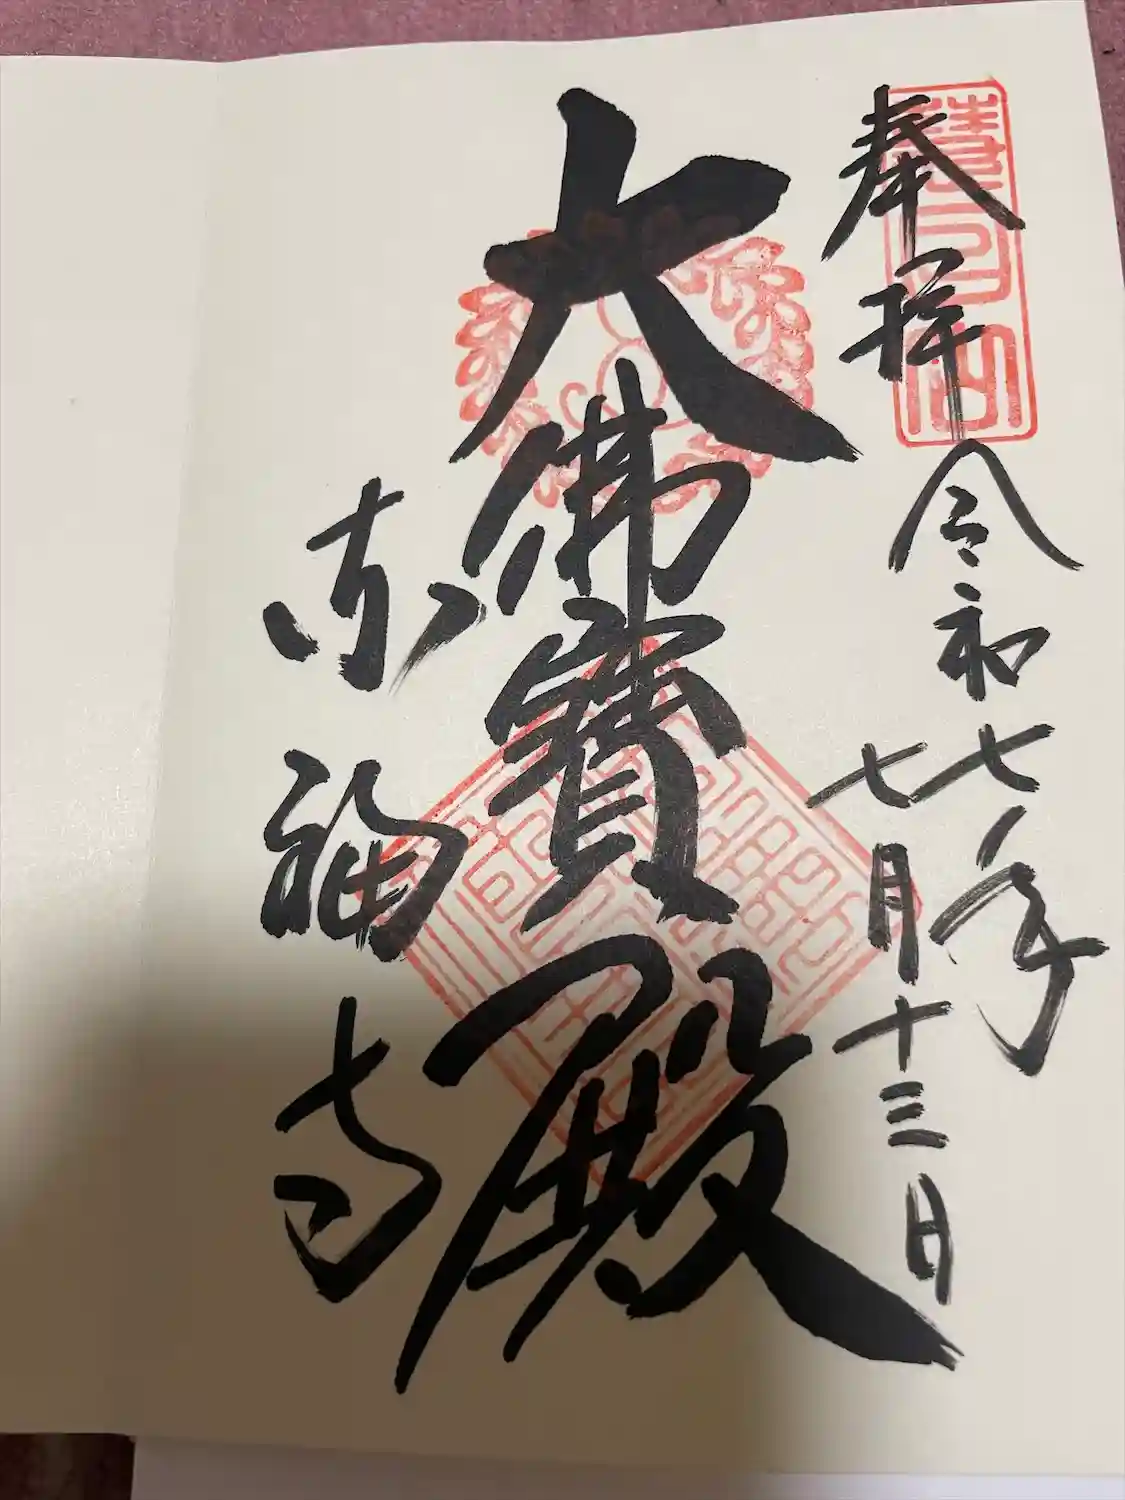 奉拝
令和七年
七月十三日
大佛寳殿
东福寺
慧日山